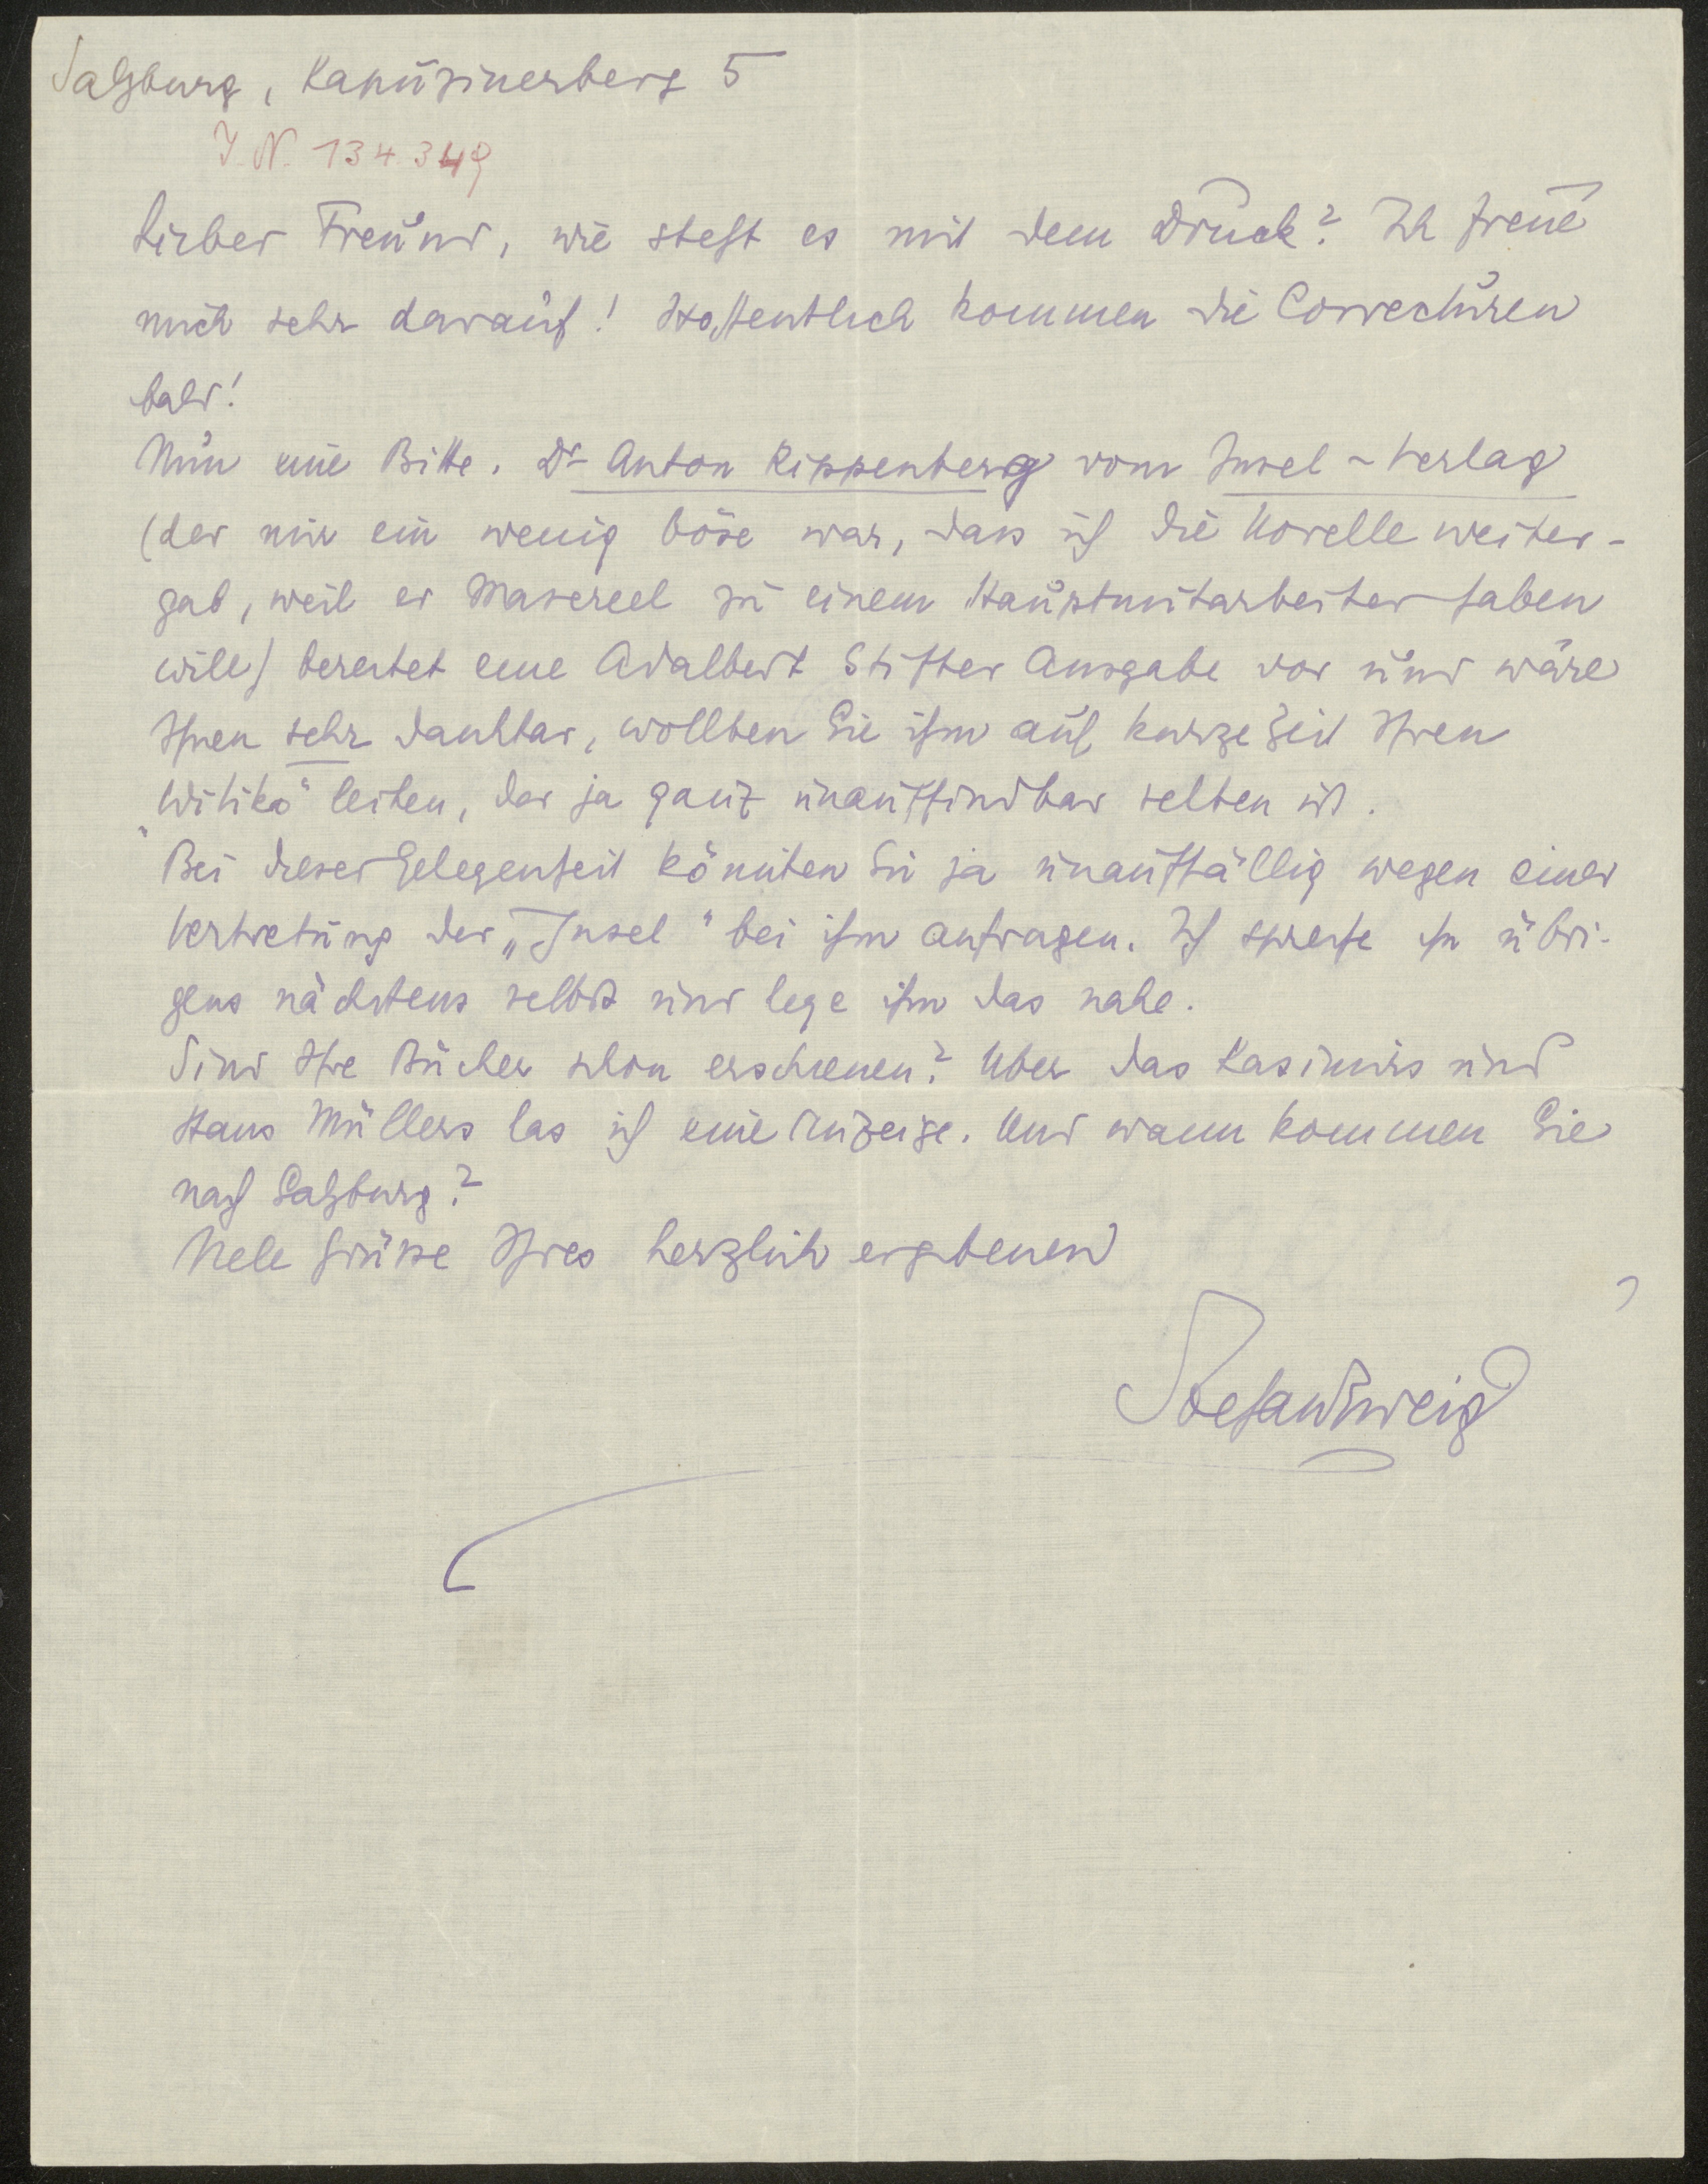 Salzburg, Kapuzinerberg 5
I. N. 134.349
Lieber Freund, wie steht es mit dem Druck? Ich freue
mich sehr darauf! Hoffentlich kommen die Correcturen
bald!
Nun eine Bitte. Dr Anton Kippenberg vom Insel-Verlag
(der mir ein wenig böse war, dass ich die Novelle weiter-
gab, weil er Masereel zu einem Hauptmitarbeiter haben
will) bereitet eine Adalbert Stifter Ausgabe vor und wäre
Ihnen sehr dankbar, wollten Sie ihm auf kurze Zeit Ihren
„Witiko“ leihen, der ja ganz unauffindbar selten ist.
Bei dieser Gelegenheit könnten Sie ja unauffällig wegen einer
Vertretung der „Insel“ bei ihm anfragen. Ich spreche ihn übri-
gens nächstens selbst und lege ihm das nahe.
Sind Ihre Bücher schon erschienen? Über das Kasimirs und
Hans Müllers las ich eine Anzeige. Und wann kommen Sie
nach Salzburg?
Viele Grüsse Ihres herzlich ergebenen
Stefan Zweig